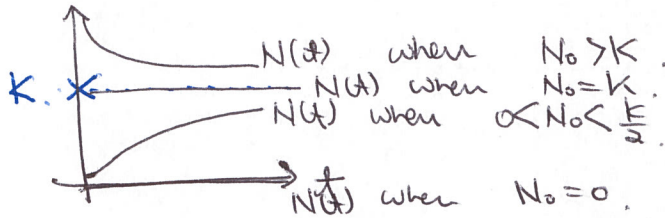 N(t) when N₀ > K.
K. N(t) when N₀ = K.
N(t) when 0 < N₀ < K/2.
t
N(t) when N₀ = 0.